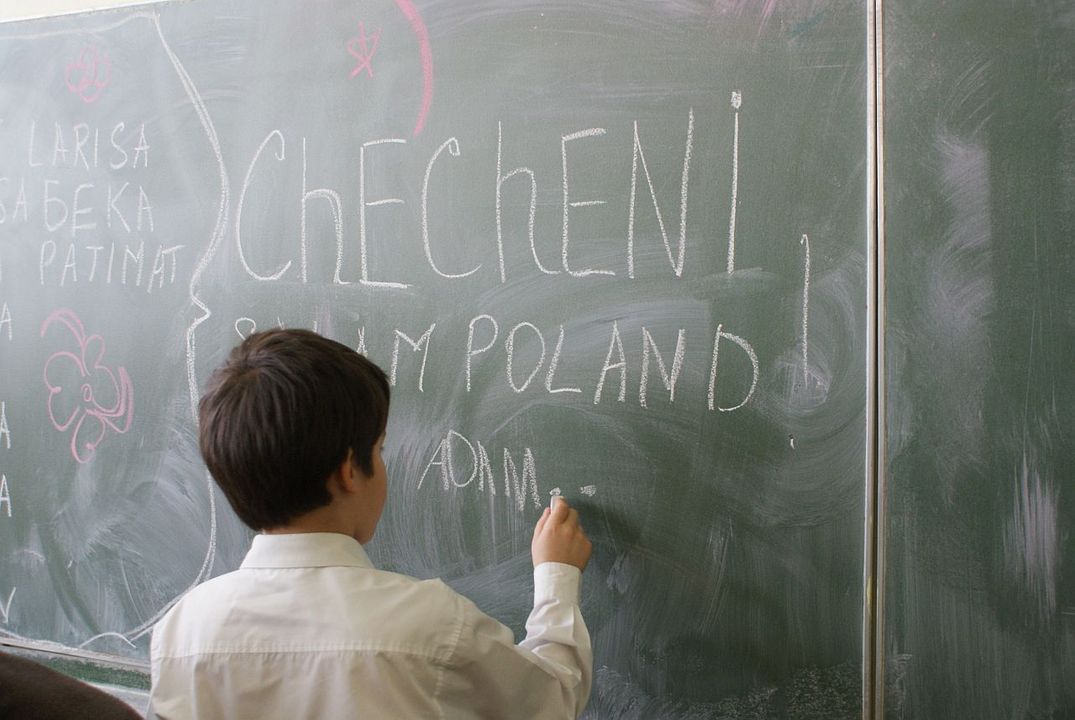 LARISA
SAБEKA
PATIMAT
ChEChENi !
POLAND
ADAM..